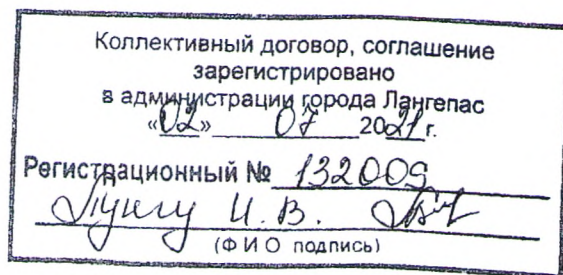 Коллективный договор, соглашение
зарегистрировано
в администрации города Лангепас
«02» 07 2021 г.
Регистрационный № 132009
И. В.
(Ф И О подпись)